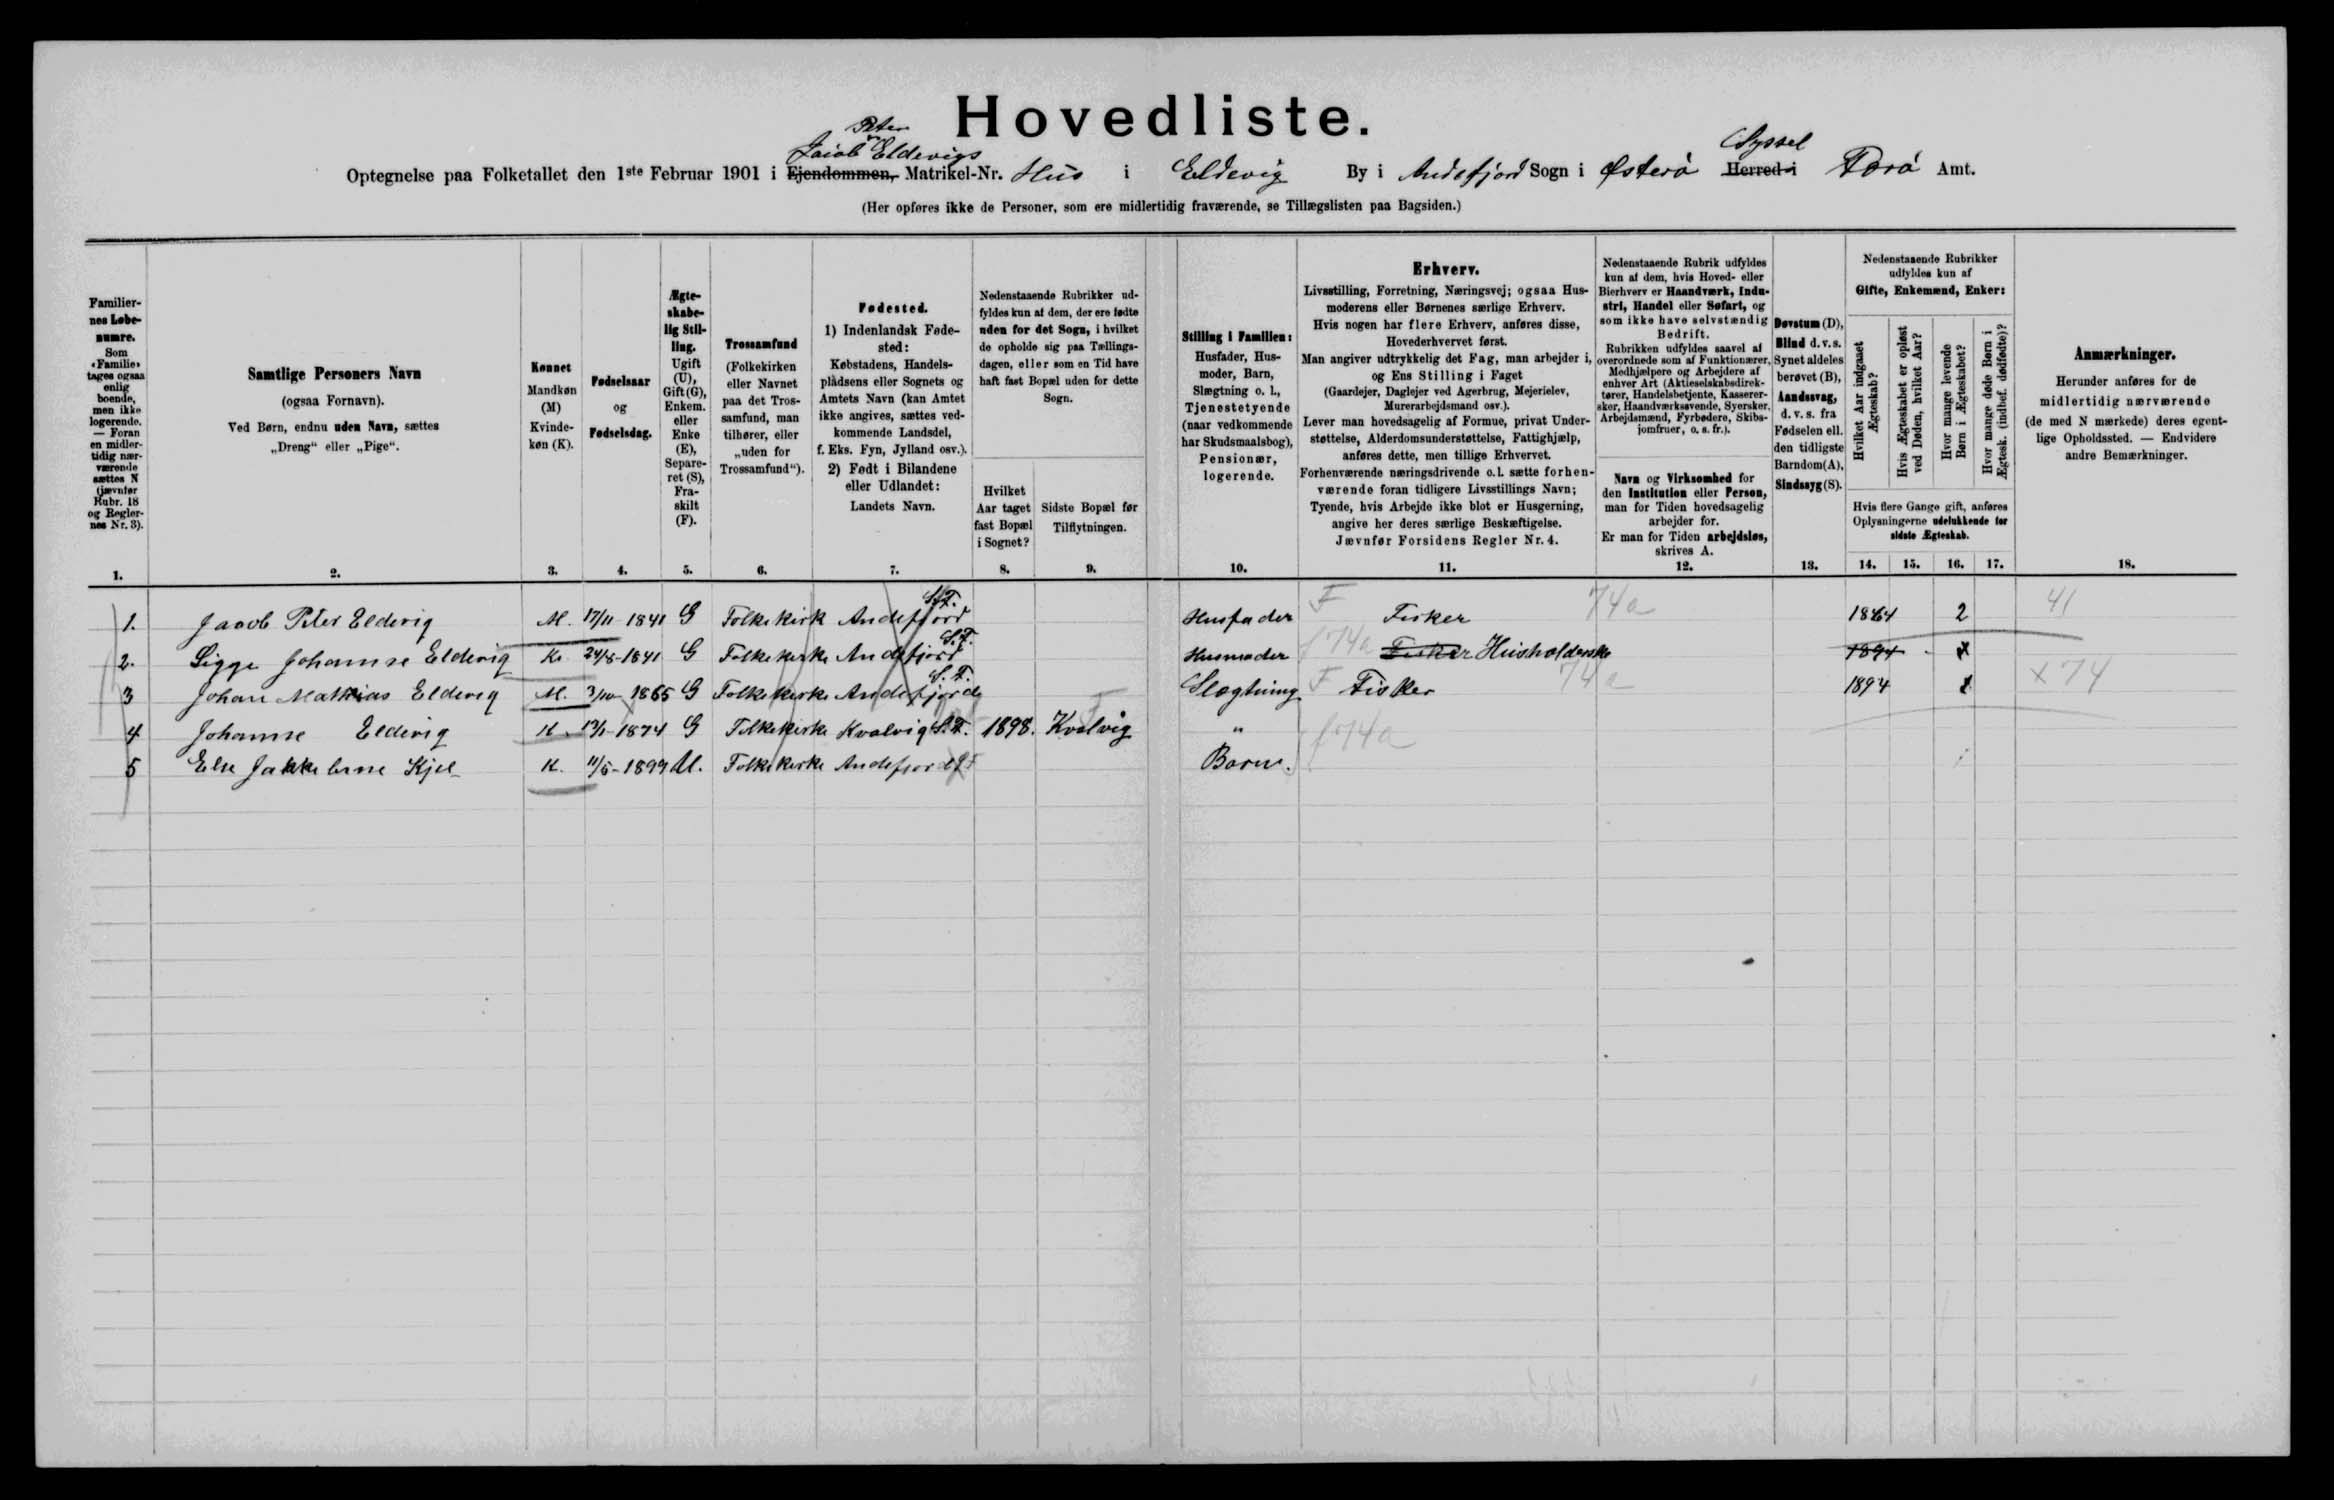 Hovedliste.
Peter
Jacob Eldevigs
Syssel
Optegnelse paa Folketallet den 1ste Februar 1901 i Ejendommen, Matrikel-Nr. Hus i Eldevig By i Andefjord Sogn i Østerø Herred i Færø Amt.
(Her opføres ikke de Personer, som ere midlertidig fraværende, se Tillægslisten paa Bagsiden.)
Familiernes Løbenumre.
Som «Familie» tages ogsaa enlig boende, men ikke logerende. — Foran en midlertidig nærværende sættes N (jævnfør Rubr. 18 og Reglernes Nr. 3).
Samtlige Personers Navn
(ogsaa Fornavn).
Ved Børn, endnu uden Navn, sættes
„Dreng“ eller „Pige“.
Kønnet
Mandkøn (M)
Kvindekøn (K).
Fødselsaar
og
Fødselsdag.
Ægteskabelig Stilling.
Ugift (U), Gift (G), Enkem. eller Enke (E), Separeret (S), Fraskilt (F).
Trossamfund
(Folkekirken eller Navnet paa det Trossamfund, man tilhører, eller „uden for Trossamfund“).
Fødested.
1) Indenlandsk Fødested:
Købstadens, Handelspladsens eller Sognets og Amtets Navn (kan Amtet ikke angives, sættes vedkommende Landsdel, f. Eks. Fyn, Jylland osv.).
2) Født i Bilandene eller Udlandet:
Landets Navn.
Nedenstaaende Rubrikker udfyldes kun af dem, der ere fødte uden for det Sogn, i hvilket de opholde sig paa Tællingsdagen, eller som en Tid have haft fast Bopæl uden for dette Sogn.
Hvilket Aar taget fast Bopæl i Sognet?
Sidste Bopæl før Tilflytningen.
Stilling i Familien:
Husfader, Husmoder, Barn, Slægtning o. l., Tjenestetyende (naar vedkommende har Skudsmaalsbog), Pensionær, logerende.
Erhverv.
Livsstilling, Forretning, Næringsvej; ogsaa Husmoderens eller Børnenes særlige Erhverv.
Hvis nogen har flere Erhverv, anføres disse, Hovederhvervet først.
Man angiver udtrykkelig det Fag, man arbejder i, og Ens Stilling i Faget
(Gaardejer, Daglejer ved Agerbrug, Mejerielev, Murerarbejdsmand osv.).
Lever man hovedsagelig af Formue, privat Understøttelse, Alderdomsunderstøttelse, Fattighjælp, anføres dette, men tillige Erhvervet.
Forhenværende næringsdrivende o.l. sætte forhenværende foran tidligere Livsstillings Navn;
Tyende, hvis Arbejde ikke blot er Husgerning, angive her deres særlige Beskæftigelse.
Jævnfør Forsidens Regler Nr. 4.
Nedenstaaende Rubrik udfyldes kun af dem, hvis Hoved- eller Bierhverv er Haandværk, Industri, Handel eller Søfart, og som ikke have selvstændig Bedrift.
Rubrikken udfyldes saavel af overordnede som af Funktionærer, Medhjælpere og Arbejdere af enhver Art (Aktieselskabsdirektører, Handelsbetjente, Kasserersker, Haandværkssvende, Syersker, Arbejdsmænd, Fyrbødere, Skibsjomfruer, o. s. fr.).
Navn og Virksomhed for den Institution eller Person, man for Tiden hovedsagelig arbejder for.
Er man for Tiden arbejdsløs, skrives A.
Døvstum (D), Blind d.v.s. Synet aldeles berøvet (B), Aandssvag, d. v. s. fra Fødselen ell. den tidligste Barndom (A), Sindssyg (S).
Nedenstaaende Rubrikker udfyldes kun af
Gifte, Enkemænd, Enker:
Hvilket Aar indgaaet Ægteskab?
Hvis Ægteskabet er opløst ved Døden, hvilket Aar?
Hvor mange levende Børn i Ægteskabet?
Hvor mange døde Børn i Ægtesk. (indbef. dødfødte)?
Hvis flere Gange gift, anføres Oplysningerne udelukkende for sidste Ægteskab.
Anmærkninger.
Herunder anføres for de midlertidig nærværende (de med N mærkede) deres egentlige Opholdssted. — Endvidere andre Bemærkninger.
1. 2. 3. 4. 5. 6. 7. 8. 9. 10. 11. 12. 13. 14. 15. 16. 17. 18.
1. Jacob Peter Eldevig M. 17/11-1841 G Folkekirk Andefjord S.F. Husfader F Fisker 74a 1864 2 41
2. Sigge Johanne Eldevig K. 24/8-1841 G Folkekirke Andefjord S.F. Husmoder f 74a Fisker Husholderske 1894
3 Johan Mathias Eldevig M. 3/10-1865 G Folkekirke Andefjord S.F. Slægtning F Fisker 74a 1894 x 74
4 Johanne Eldevig K. 13/1-1874 G Folkekirke Kvalvig S.F. 1898. F Kvalvig " f 74a
5 Else Jakkebine Kjel K. 11/5-1899 U. Folkekirke Andefjord SF Barn.